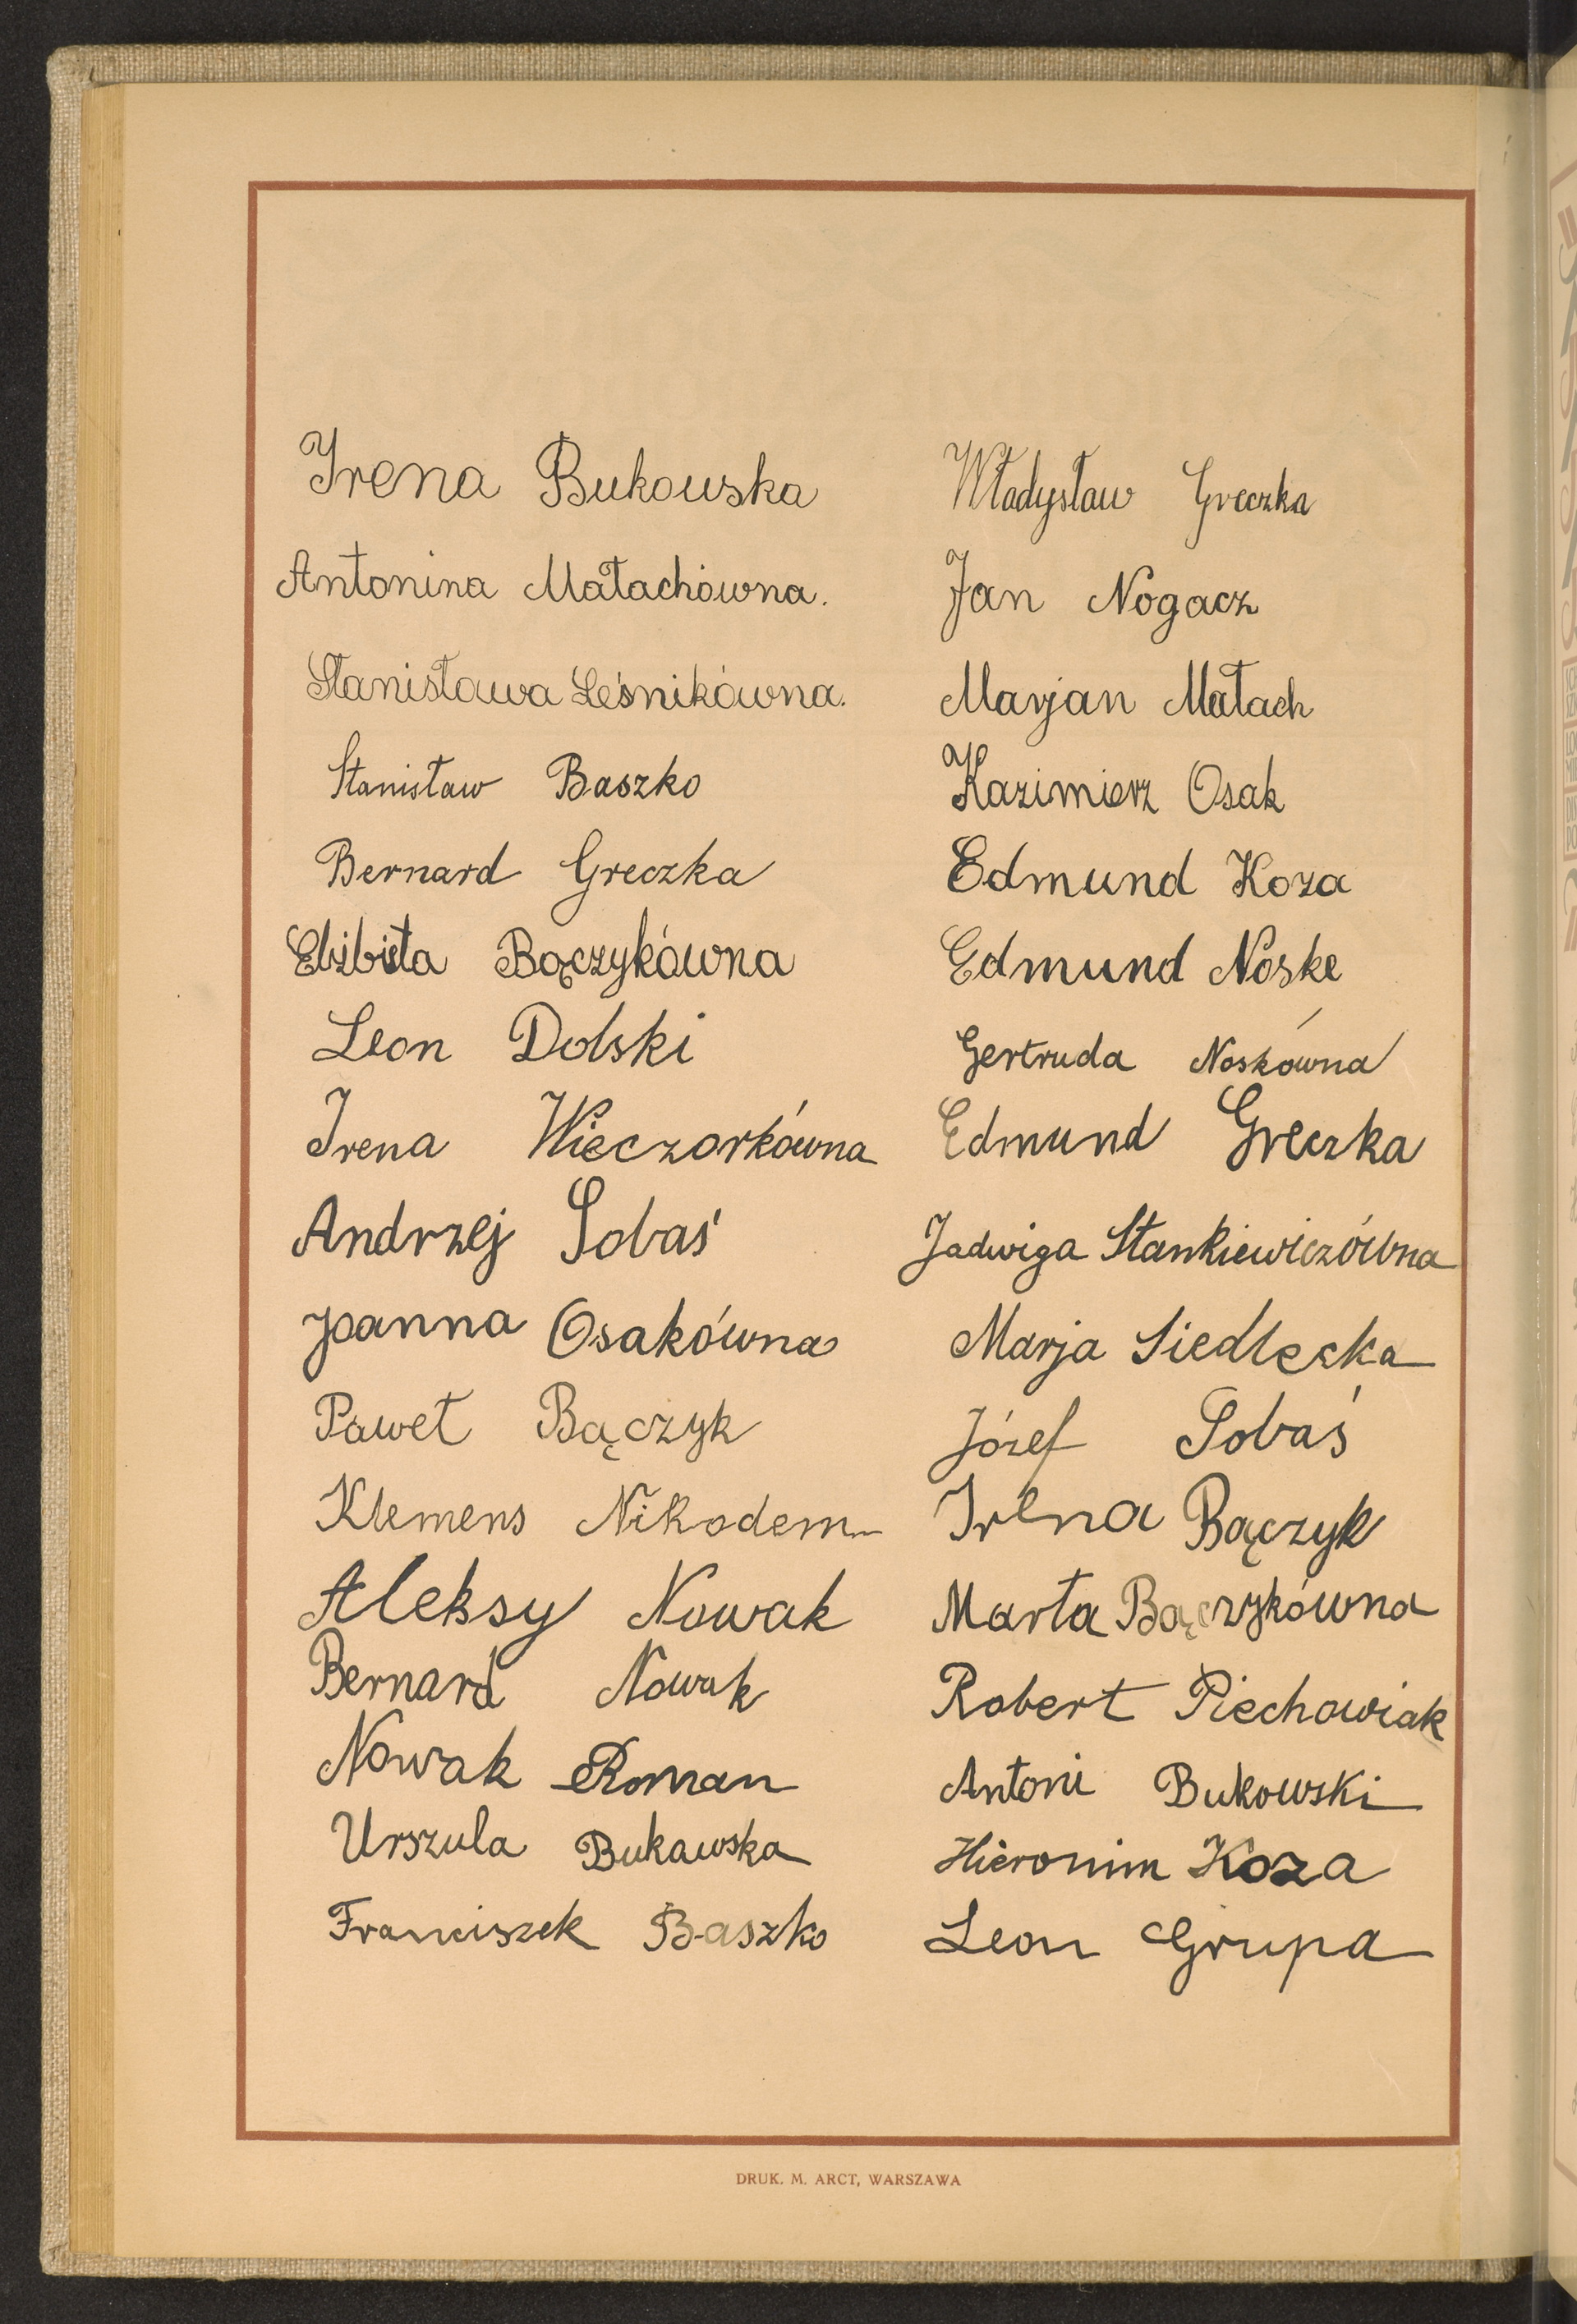 Irena Bukowska
Antonina Małachówna.
Stanisława Leśnikówna.
Stanisław Baszko
Bernard Greczka
Elżbieta Bączykówna
Leon Dolski
Irena Wieczorkówna
Andrzej Sobaś
Joanna Osakówna
Paweł Bączyk
Klemens Nikodem
Aleksy Nowak
Bernard Nowak
Nowak Roman
Urszula Bukawska
Franciszek Baszko
Władysław Greczka
Jan Nogacz
Marjan Małach
Kazimierz Osak
Edmund Koza
Edmund Noske
Gertruda Noskówna
Edmund Greczka
Jadwiga Stankiewiczówna
Marja Siedlecka
Józef Sobaś
Irena Bączyk
Marta Bączykówna
Robert Piechowiak
Antoni Bukowski
Hieronim Koza
Leon Grupa
DRUK. M. ARCT, WARSZAWA